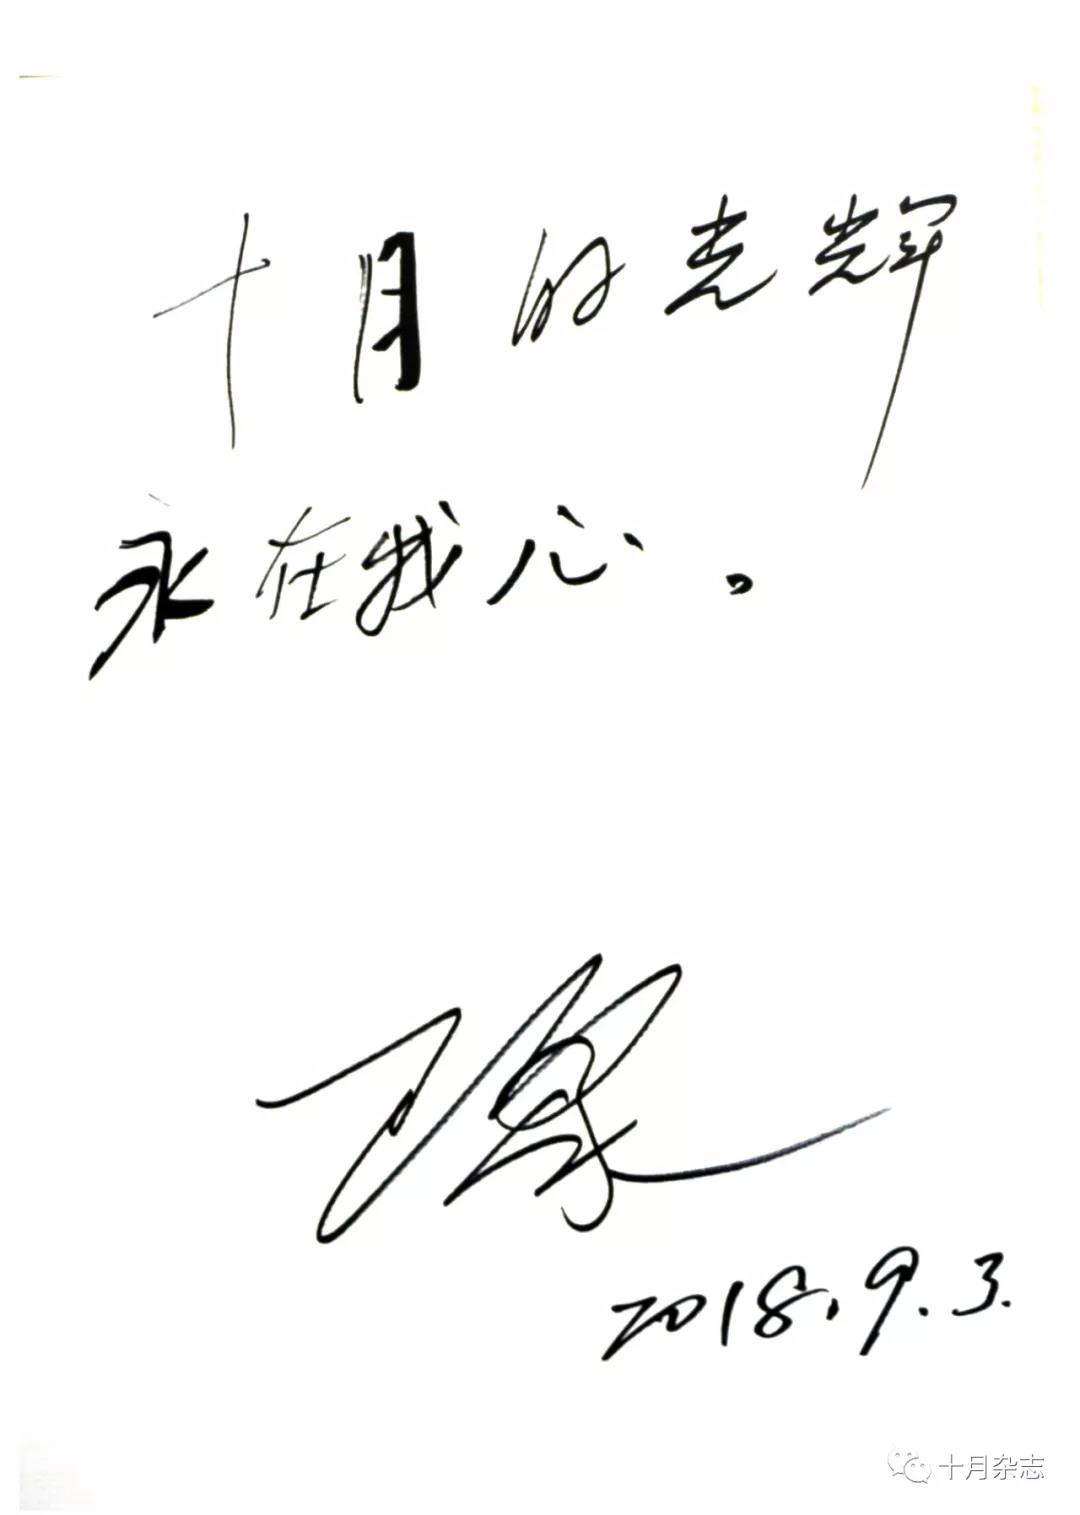 十月的光辉
永在我心。
2018.9.3.
十月杂志